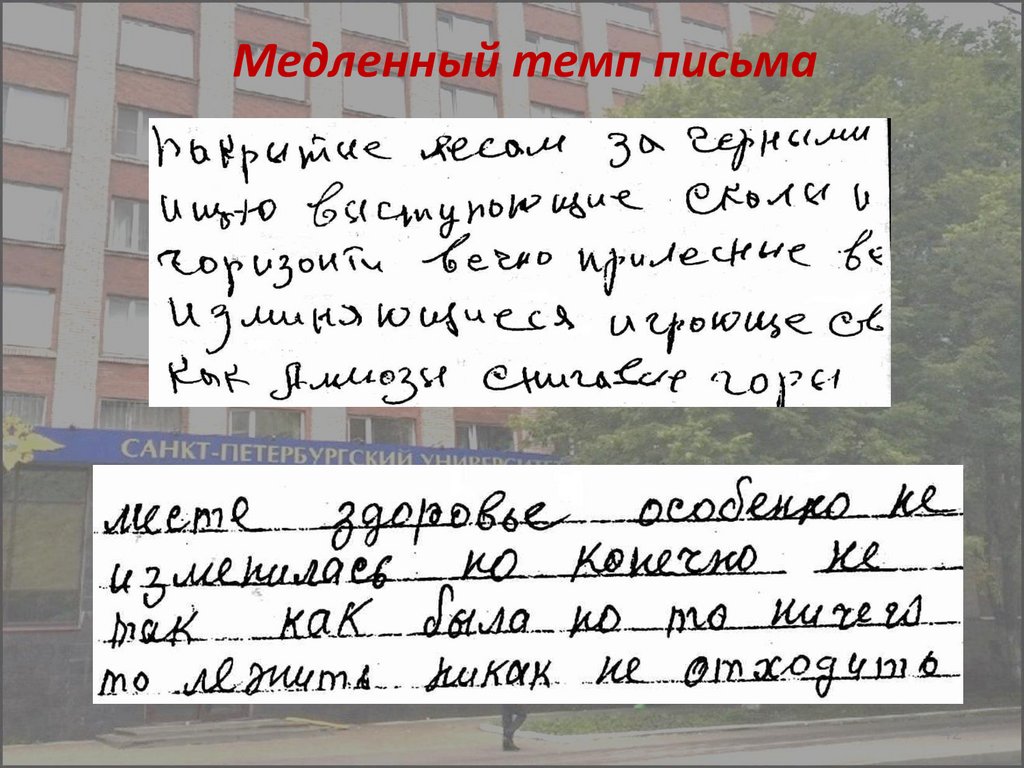 Медленный темп письма
пакрытие лесам за черными
ищтю выступоющие сколы и
горизонти вечно прилесные ве
изминяющиеся игроюще св
как Алмозы снигавые горы
САНКТ-ПЕТЕРБУРГСКИЙ УНИВЕРСИТЕ
месте здоровье особенно не
изменилась но конечно не
так как была но то ничего
то лежить никак не отходить